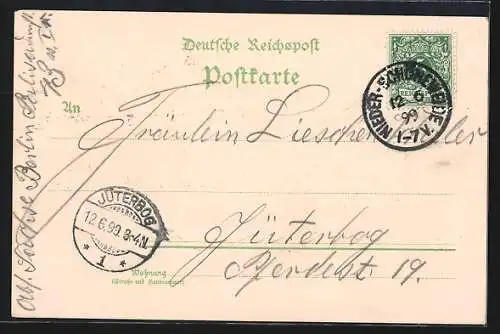 Deutsche Reichspost
Postkarte
An
Fräulein Lieschen
Jüterbog
Pferdestr. 19.
Wohnung
(Straße und Hausnummer)
NIEDER-SCHÖNEWEIDE
12 6
99
1-7V.
JÜTERBOG
12.6.99.8-4N.
* 1 *
Abs. Berlin